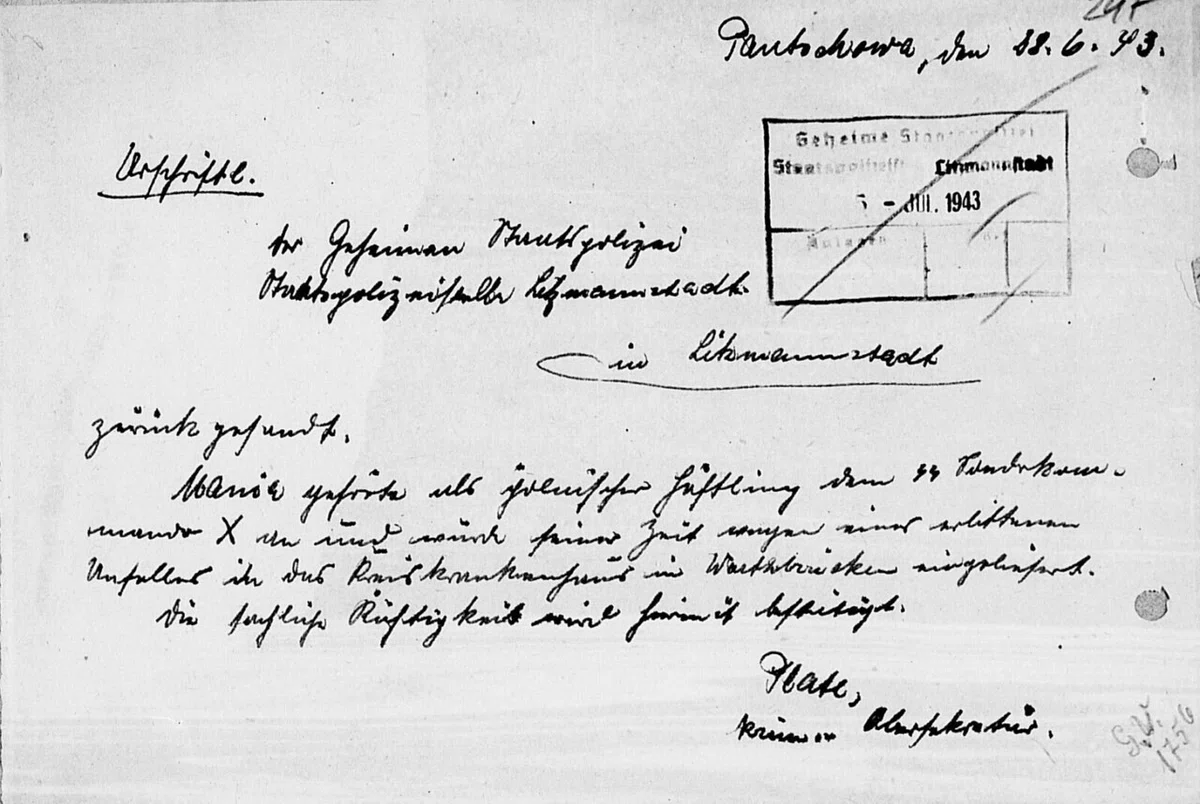 Pantschowa, den 28.6.43.
Geheime Staatspolizei
Staatspolizeistelle Litzmannstadt
- JUL. 1943
Anlagen
Urschriftl.
der Geheimen Staatspolizei
Staatspolizeistelle Litzmannstadt.
in Litzmannstadt
zurück gesandt.
Mania gehörte als polnischer Häftling dem SS Sonderkom-
mando X an und wurde seiner Zeit wegen eines erlittenen
Unfalles in das Kreiskrankenhaus in Warthbrücken eingeliefert.
Die sachliche Richtigkeit wird hiermit bestätigt.
Plate,
Krim. Obersekretär.